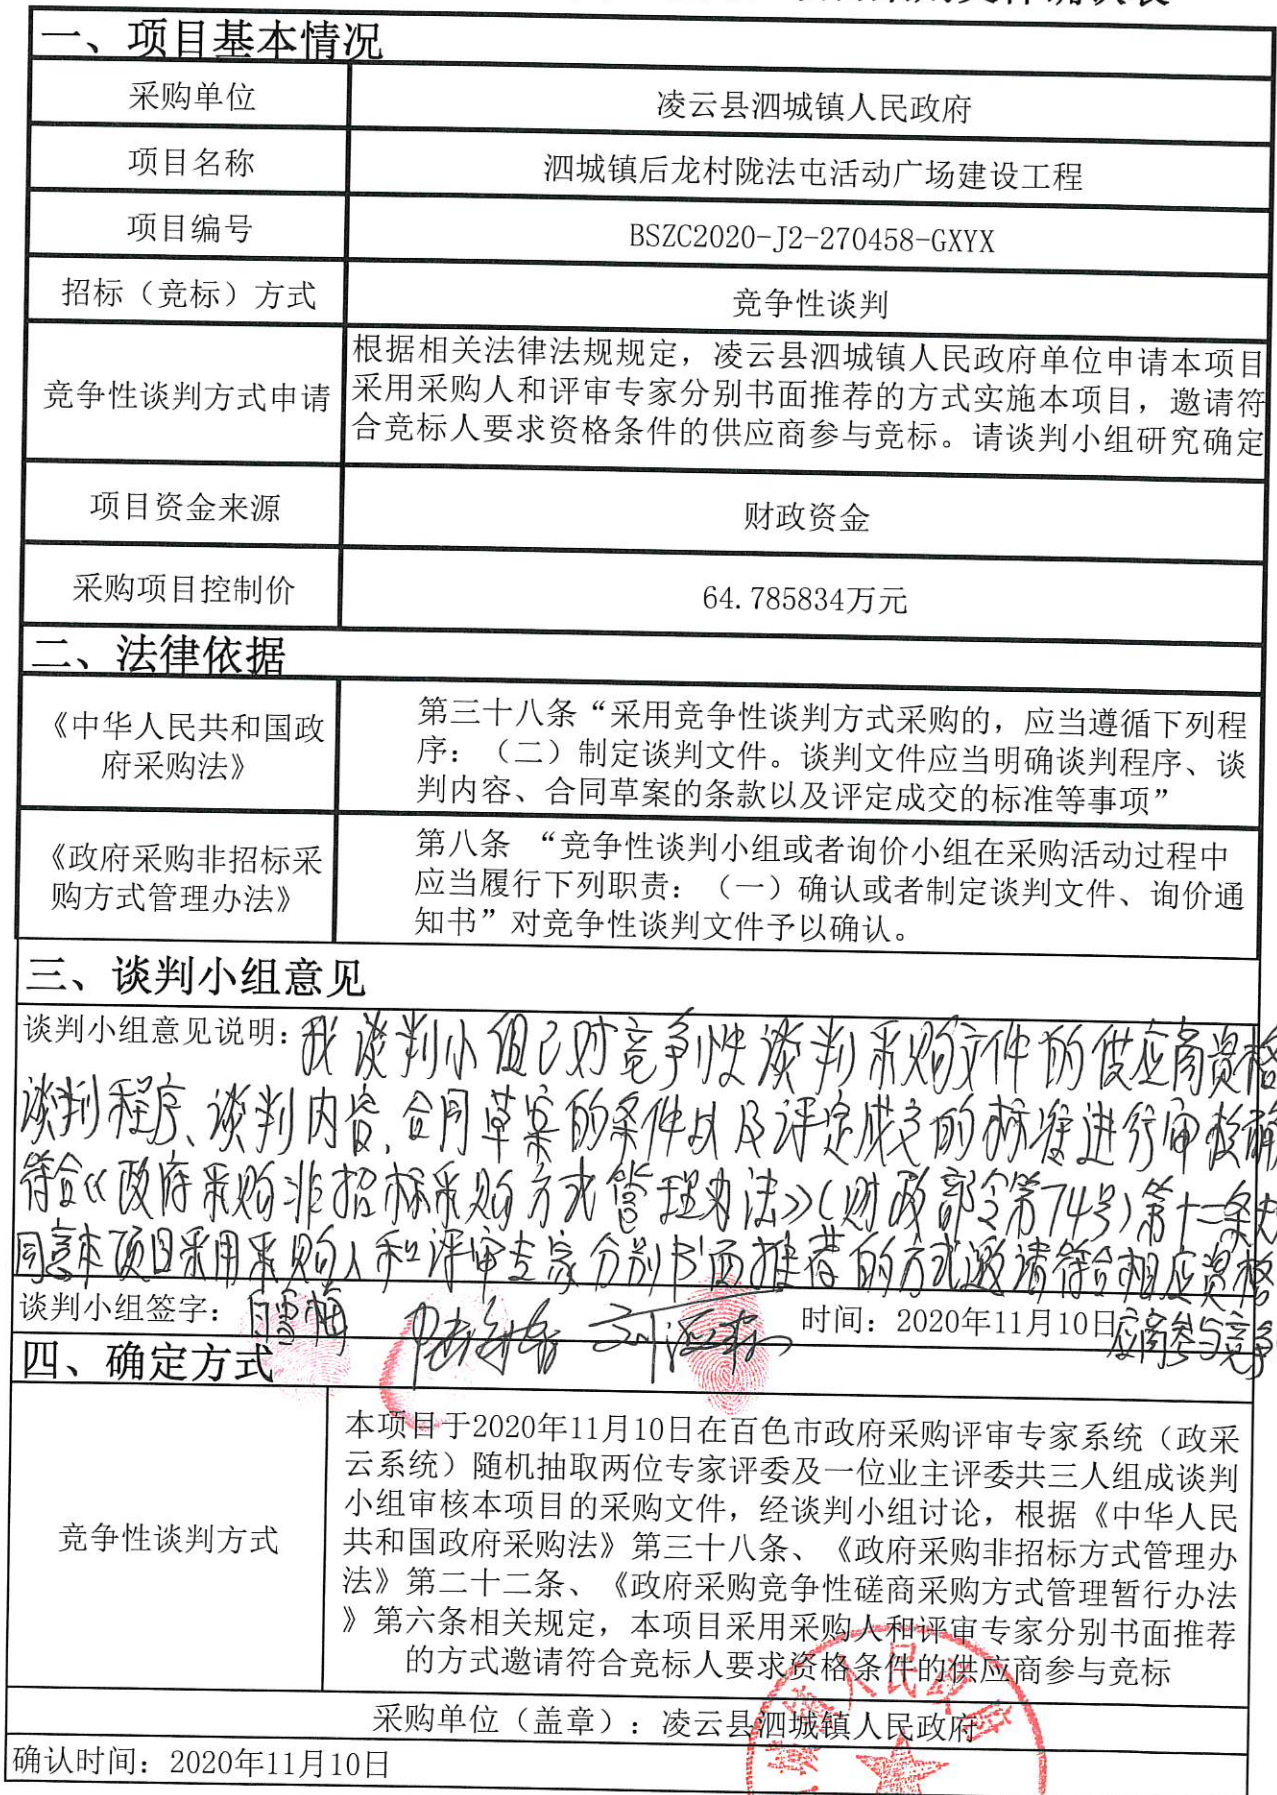 一、项目基本情况
采购单位
凌云县泗城镇人民政府
项目名称
泗城镇后龙村陇法屯活动广场建设工程
项目编号
BSZC2020-J2-270458-GXYX
招标（竞标）方式
竞争性谈判
竞争性谈判方式申请
根据相关法律法规规定，凌云县泗城镇人民政府单位申请本项目
采用采购人和评审专家分别书面推荐的方式实施本项目，邀请符
合竞标人要求资格条件的供应商参与竞标。请谈判小组研究确定
项目资金来源
财政资金
采购项目控制价
64.785834万元
二、法律依据
《中华人民共和国政
府采购法》
第三十八条“采用竞争性谈判方式采购的，应当遵循下列程
序：（二）制定谈判文件。谈判文件应当明确谈判程序、谈
判内容、合同草案的条款以及评定成交的标准等事项”
《政府采购非招标采
购方式管理办法》
第八条 “竞争性谈判小组或者询价小组在采购活动过程中
应当履行下列职责：（一）确认或者制定谈判文件、询价通
知书”对竞争性谈判文件予以确认。
三、谈判小组意见
谈判小组意见说明：我谈判小组已对竞争性谈判采购文件的供应商资格
谈判程序、谈判内容、合同草案的条件以及评定成交的标准进行审核确
符合《政府采购非招标采购方式管理办法》（财政部令第74号）第十一条
同意本项目采用采购人和评审专家分别书面推荐的方式邀请符合相应资格
应商参与竞争
谈判小组签字：
时间：2020年11月10日
四、确定方式
竞争性谈判方式
本项目于2020年11月10日在百色市政府采购评审专家系统（政采
云系统）随机抽取两位专家评委及一位业主评委共三人组成谈判
小组审核本项目的采购文件，经谈判小组讨论，根据《中华人民
共和国政府采购法》第三十八条、《政府采购非招标方式管理办
法》第二十二条、《政府采购竞争性磋商采购方式管理暂行办法
》第六条相关规定，本项目采用采购人和评审专家分别书面推荐
的方式邀请符合竞标人要求资格条件的供应商参与竞标
采购单位（盖章）：凌云县泗城镇人民政府
确认时间：2020年11月10日